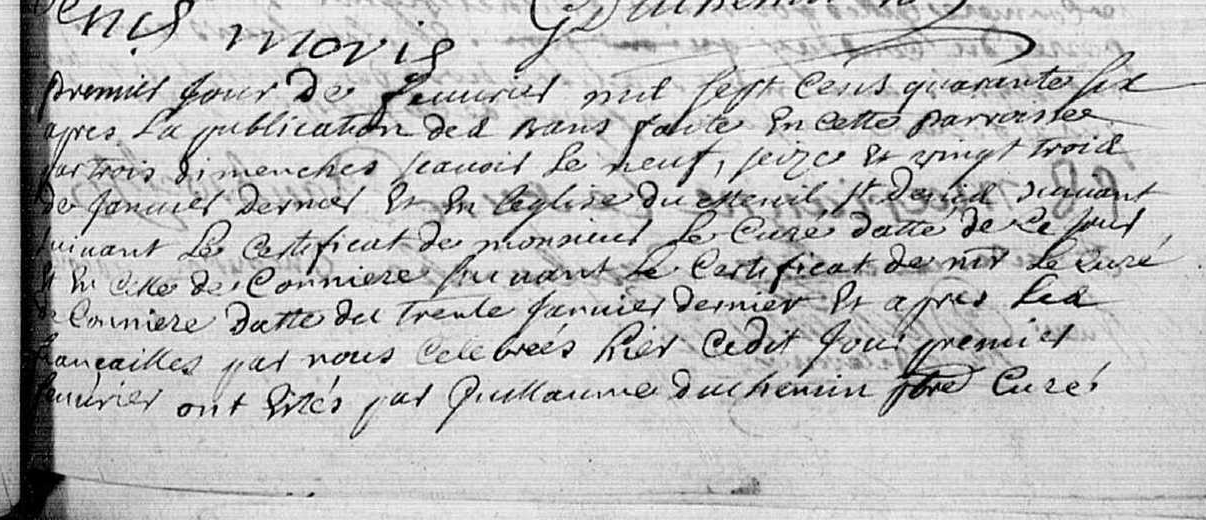 Denis moris G Duchemin
premier jour de feuurier mil sept cens quarante six
apres La publication des bans faite En cette parroisse
par trois dimenches scauoir Le neuf, seize Et vingt trois
de januier dernier Et En l'eglise du menil st denis suiuant
suiuant Le Certificat de monsieur Le Curé datté de Ce jour
Et En celle de Conniere suiuant Le Certificat de mr Le curé
de Conniere datté du trente januier dernier Et apres Les
fiançailles par nous Celebreés hier Cedit jour premier
feuurier ont Estés par Guillaume duchemin ptre Curés